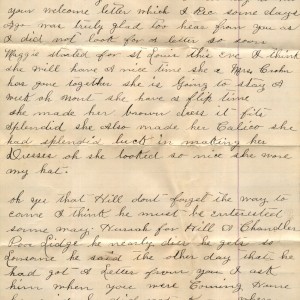 your welcome letter which I Rec some days
ago was truly glad too hear from you as
I did not look for a letter so soon
Maggie started for St Louis this eve I think
she will have a nice time she & Mrs
has gone together she is Going to stay 2
week oh wont she have a flip time
she made her brown dress it fits
splendid she Also made her Calico she
had splendid luck in making her
Dresses oh she looked so nice she wore
my hat.
oh yes that Hill dont forget the way to
come I think he must be enterested
some may. Hurrah for Hill & Chandler
Poor Lidge he nearly dies he gets so
lonsome he said the other day that he
had got A Letter from you I ask
him when you were Coming Home